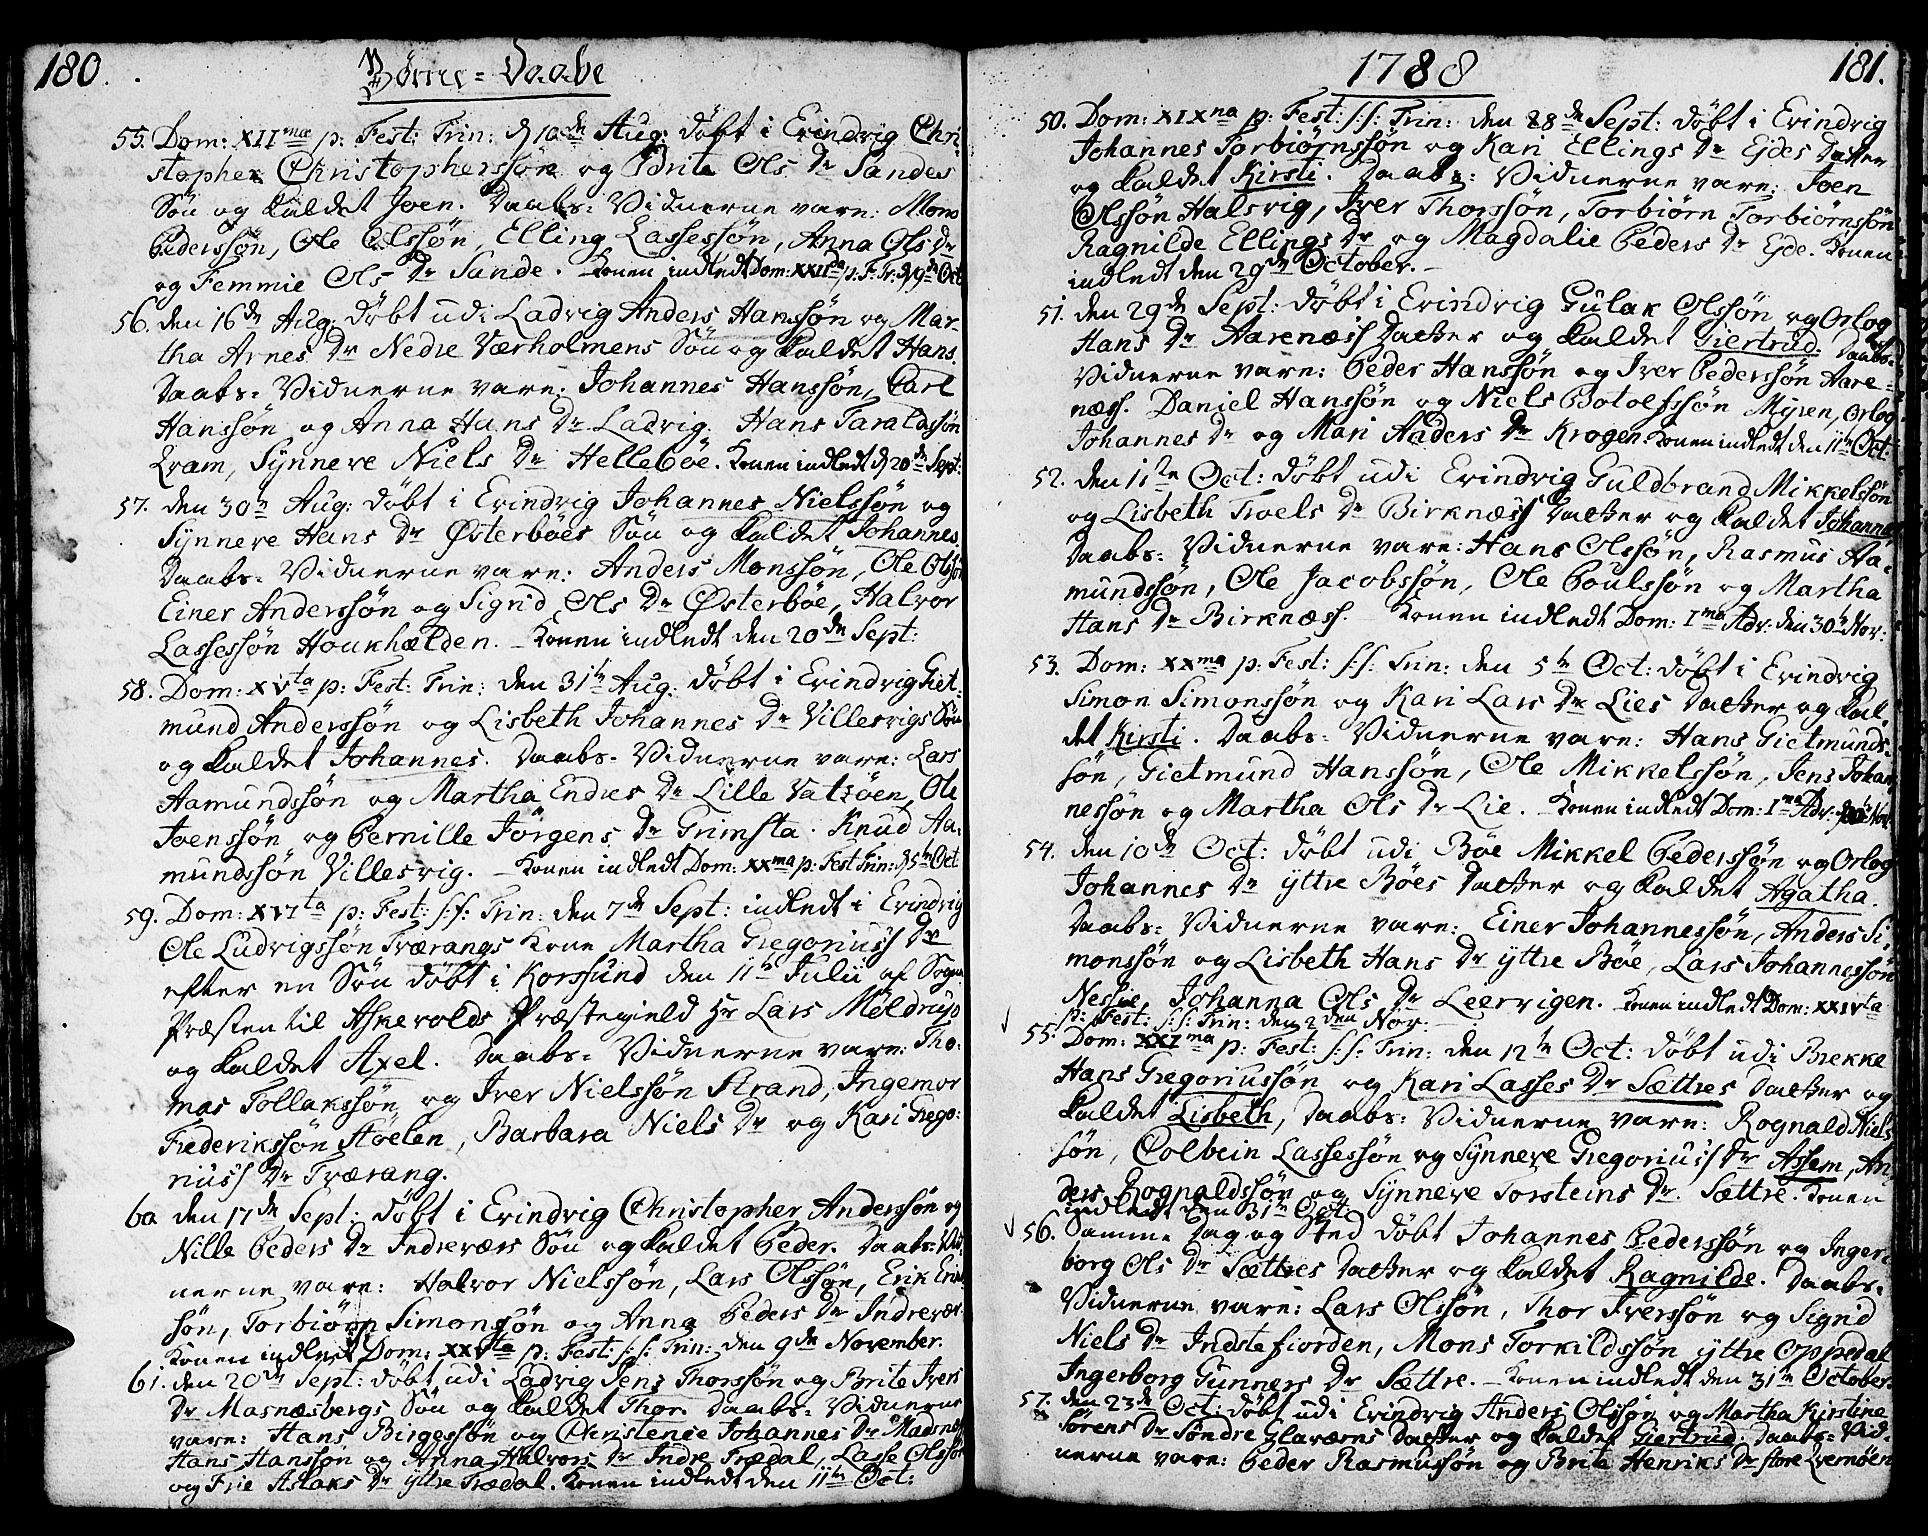 180.
Børne-Daabe
55. Dom: XIIma p: Fest: Trin: d 10de Aug: døbt i Evindvig Chri-
stopher Christopherssøn og Brite Ols Dr Sandes
Søn og kaldet Joen. Daabs-Vidnerne vare: Mons
Pederssøn, Ole Olssøn, Elling Lassessøn, Anna Ols Dr
og Femmie Ols Dr Sande. Konen indledt Dom: p: F: Tr: d 19de Oct
56. den 16de Aug: døbt udi Ladvig Anders Hanssøn og Mar-
tha Arnes Dr Nedre Værholmens Søn og kaldet Hans.
Daabs-Vidnerne vare: Johannes Hanssøn, Carl
Hanssøn og Anna Hans Dr Ladvig. Hans Taraldssøn
Qvam, Synneve Niels Dr Hellebøe. Konen indledt d 20de Sept:
57. den 30te Aug: døbt i Evindvig Johannes Nielssøn og
Synneve Hans Dr Østerbøes Søn og kaldet Johannes.
Daabs-Vidnerne vare: Anders Monssøn, Ole Olssøn
Einer Anderssøn og Sigrid Ols Dr Østerbøe, Halvor
Lassessøn Houkhælden. - Konen indledt den 20de Sept:
58. Dom: XVta p: Fest: Trin: den 31te Aug: døbt i Evindvig Giet-
mund Anderssøn og Lisbeth Johannes Dr Villesvigs Søn
og kaldet Johannes. Daabs-Vidnerne vare: Lars
Aamundssøn og Martha Endres Dr Lille Vatsøen, Ole
Joenssøn og Pernille Jørgens Dr Grimsta. Knud Aa-
mundssøn Villesvig. - Konen indledt Dom: XXma p: Fest: Trin: d 5te Oct
59. Dom: XVIta p: Fest: S:S: Trin: den 7de Sept: indledt i Evindvig
Ole Ludvigssøn Træerangs Kone Martha Gregoriuss Dr
efter en Søn døbt i Korssund den 11te Julii af Sogne
Præsten til Askevolds Præstegield Hr Lars Möldrup
og kaldet Axel. Daabs-Vidnerne vare: Tho-
mas Tollakssøn og Iver Nielssøn Strand, Ingemor
Frederikssøn Støelen, Barbara Niels Dr og Kari Grego-
riuss Dr Træerang.
60. den 17de Sept: døbt i Evindvig Christopher Anderssøn og
Nille Peders Dr Indreværs Søn og kaldet Peder. Daabs-Vid-
nerne vare: Halvor Nielssøn, Lars Olssøn, Erik Erik-
søn, Torbiørn Simonssøn og Anna Peders Dr Indrevær.
Konen indledt Dom: XXVta p: Fest: S:S: Trin: den 9de November.
61. den 20de Sept: døbt udi Ladvig Jens Thorssøn og Brite Ivers
Dr Masnæsbergs Søn og kaldet Thor. Daabs-Vidnerne
vare: Hans Birgessøn og Christense Johannes Dr Masnes
Hans Hanssøn og Anna Halvors Dr Indre Trædal, Lasse Olssøn
og Frie Aslaks Dr Yttre Trædal. Konen indledt den 11te Oct:
1788
181.
50. Dom: XIXna p: Fest: S:S: Trin: den 28de Sept: døbt i Evindvig
Johannes Torbiørnssøn og Kari Ellings Dr Ejdes Datter
og kaldet Kirsti. Daabs-Vidnerne vare: Joen
Olssøn Halsvig, Iver Thorssøn, Torbiørn Torbiørnssøn
Ragnilde Ellings Dr og Magdalie Peders Dr Ejde. Konen
indledt den 29de October. -
51. den 29de Sept: døbt i Evindvig Gulak Olssøn og Orlog
Hans Dr Aarenæss Datter og kaldet Giertrud. Daabs-
Vidnerne vare: Peder Hanssøn og Iver Pederssøn Aare-
næss. Daniel Hanssøn og Niels Botolfssøn Myren, Orlog
Johannes Dr og Mari Anders Dr Krogen. Konen indledt den 11te Oct:
52. den 11te Oct: døbt udi Evindvig Guldbrand Mikkelssøn
og Lisbeth Troels Dr Birknæss Datter og kaldet Johanna
Daabs-Vidnerne vare: Hans Olssøn, Rasmus Aa-
mundssøn, Ole Jacobssøn, Ole Poulssøn og Martha
Hans Dr Birknæss. - Konen indledt Dom: Ima Adv: den 30te Nov:
53. Dom: XXma p: Fest: S:S: Trin: den 5te Oct: døbt i Evindvig
Simon Simonssøn og Kari Lars Dr Lies Datter og kal-
det Kirsti. Daabs-Vidnerne vare: Hans Gietmunds-
søn, Gietmund Hanssøn, Ole Mikkelssøn, Jens Johan-
nessøn og Martha Ols Dr Lie. - Konen indledt Dom: Ima Adv: d 30te Nov:
54. den 10de Oct: døbt udi Bøe Mikkel Pederssøn og Orlog
Johannes Dr Yttre Bøes Datter og kaldet Agatha.
Daabs-Vidnerne vare: Einer Johannessøn, Anders Si-
monssøn og Lisbeth Hans Dr Yttre Bøe, Lars Johannessøn
Nessie, Johanna Ols Dr Leervigen. Konen indledt Dom: XXIVta
p: Fest: S:S: Trin: den 2den Nov:
55. Dom: XXIma p: Fest: S:S: Trin: den 12te Oct: døbt udi Brekke
Hans Gregoriussøn og Kari Lasses Dr Sættres Datter og
kaldet Lisbeth, Daabs-Vidnerne vare: Rognald Niels-
søn, Colbein Lassessøn og Synneve Gregoriuss Dr Assem, An-
ders Rognaldssøn og Synneve Torsteins Dr Sættre. Konen
indledt den 31te Oct:
56. Samme Dag og Sted døbt Johannes Pederssøn og Inger-
borg Ols Dr Sættres Datter og kaldet Ragnilde. Daabs-
Vidnerne vare: Lars Olssøn, Thor Iverssøn og Sigrid
Niels Dr Indstefiorden, Mons Torkildssøn Yttre Oppedal
Ingerborg Gunners Dr Sættre. - Konen indledt den 31te October.
57. den 23de Oct: døbt udi Evindvig Anders Olssøn og Martha Kirstine
Sørens Dr Søndre Glavæens Datter og kaldet Giertrud. Daabs-Vid-
nerne vare: Peder Rasmussøn og Brite Henriks Dr store Qvernøen